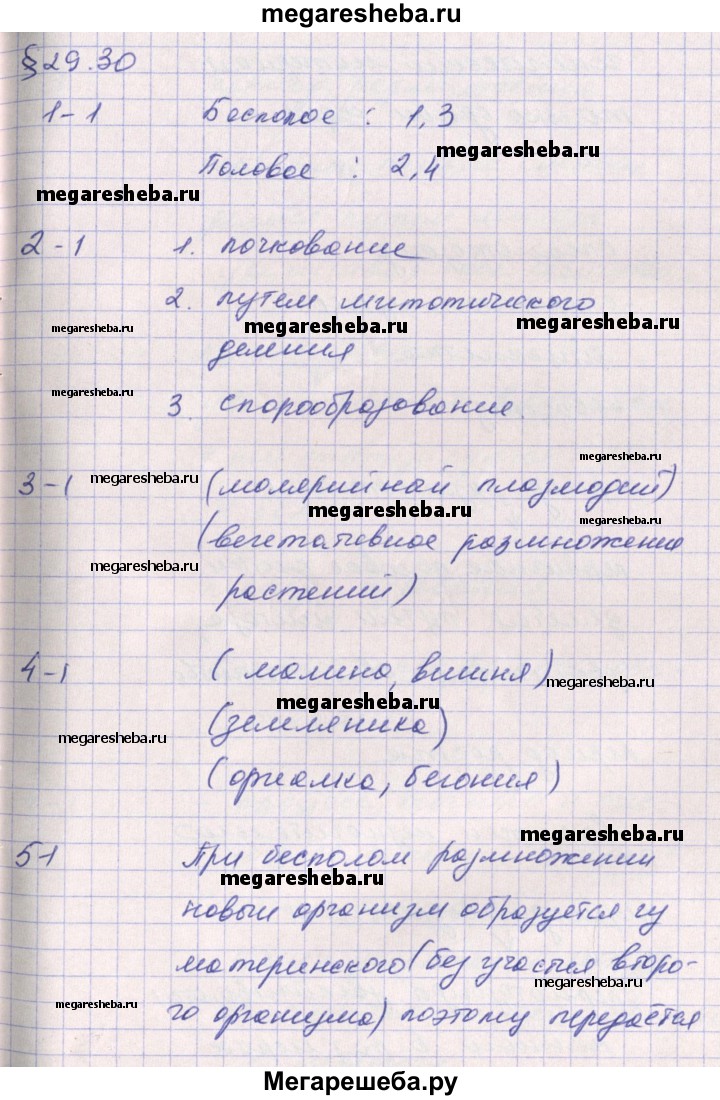 megaresheba.ru
§ 29.30
1-1 Бесполое : 1,3
megaresheba.ru
Половое : 2,4
megaresheba.ru
2-1 1. почкование
2. путем митотического
megaresheba.ru megaresheba.ru megaresheba.ru
деления
megaresheba.ru
3. спорообразование
megaresheba.ru
3-1 megaresheba.ru (молярийной плазмодий)
megaresheba.ru megaresheba.ru
(вегетативное размножение
megaresheba.ru
растений)
4-1 (малина, вишня) megaresheba.ru
megaresheba.ru
(земляника)
megaresheba.ru
(оргиалка, бегония)
megaresheba.ru
5-1 При бесполом размножении
megaresheba.ru
новый организм образуется
материнского (без участия второ-
megaresheba.ru
megaresheba.ru го организма) поэтому передаётся
megaresheba.ru megaresheba.ru
Мегарешеба.ру